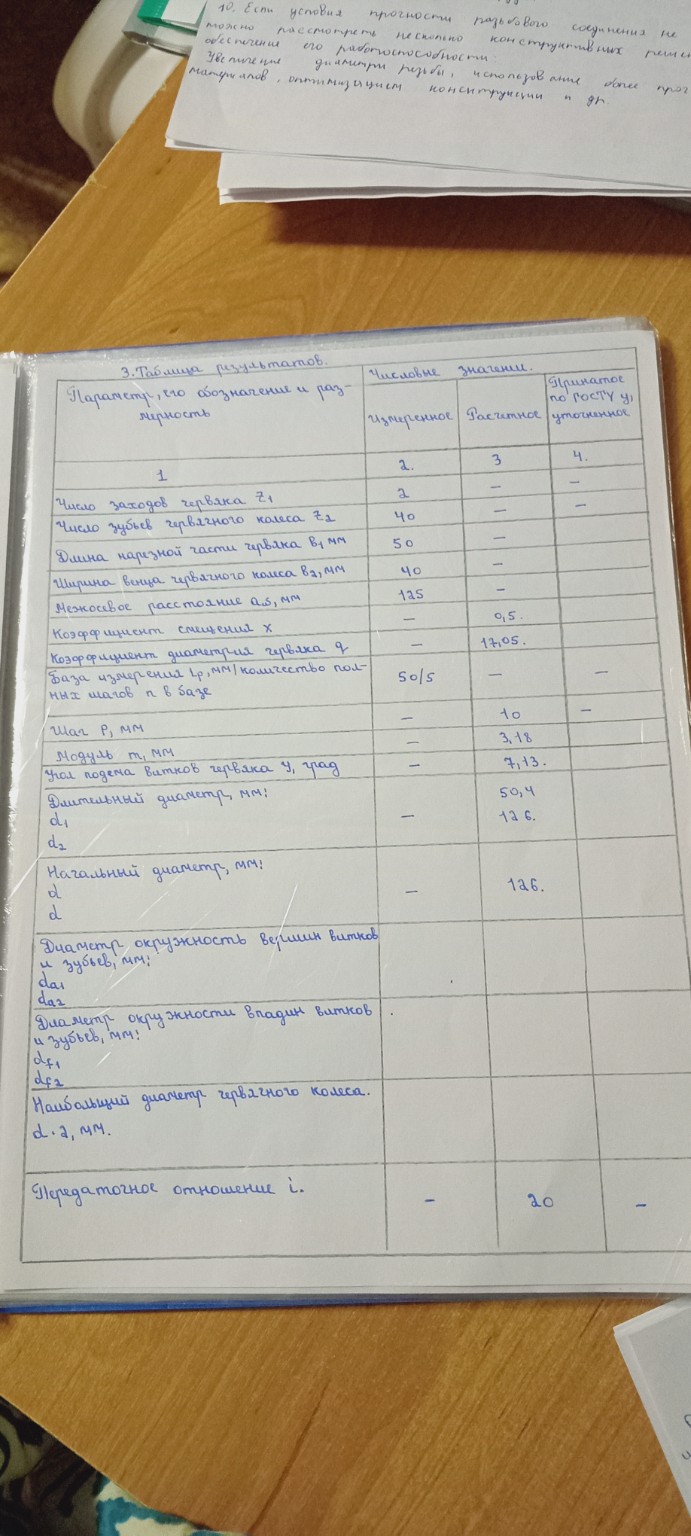 10. Если условия прочности резьбового соединения не
можно рассмотреть несколько конструктивных решен
обеспечение его работоспособности:
Увеличение диаметра резьбы, использование более проч
материалов, оптимизацием конструкции и др.
3. Таблица результатов.
Параметр, его обозначение и раз-
мерность
Числовые значение.
Измеренное Расчетное Принатое
по ГОСТу у,
уточненное
1 2. 3 4.
Число заходов червяка Z1 2 – –
Число зубьев червячного колеса Z2 40 – –
Длина нарезной части червяка В1 мм 50 –
Ширина венца червячного колеса В2, мм 40 –
Межосевое расстояние as, мм 125 –
Коэффициент смещения х – 0,5.
Коэффициент диаметрия червяка q – 17,05.
База измерения Lp, мм/количество пол-
ных шагов n в базе 50/5 – –
Шаг Р, мм – 10 –
Модуль m, мм – 3,18
Угол подема витков червяка У, град – 7,13.
Длительный диаметр, мм: 50,4
d1 – 126.
d2
Начальный диаметр, мм:
d – 126.
d
Диаметр окружность вершин витков
и зубьев, мм:
da1
da2
Диаметр окружности впадин витков
и зубьев, мм:
df1
df2
Наибольший диаметр червячного колеса.
d · 2, мм.
Передаточное отношение i. – 20 –